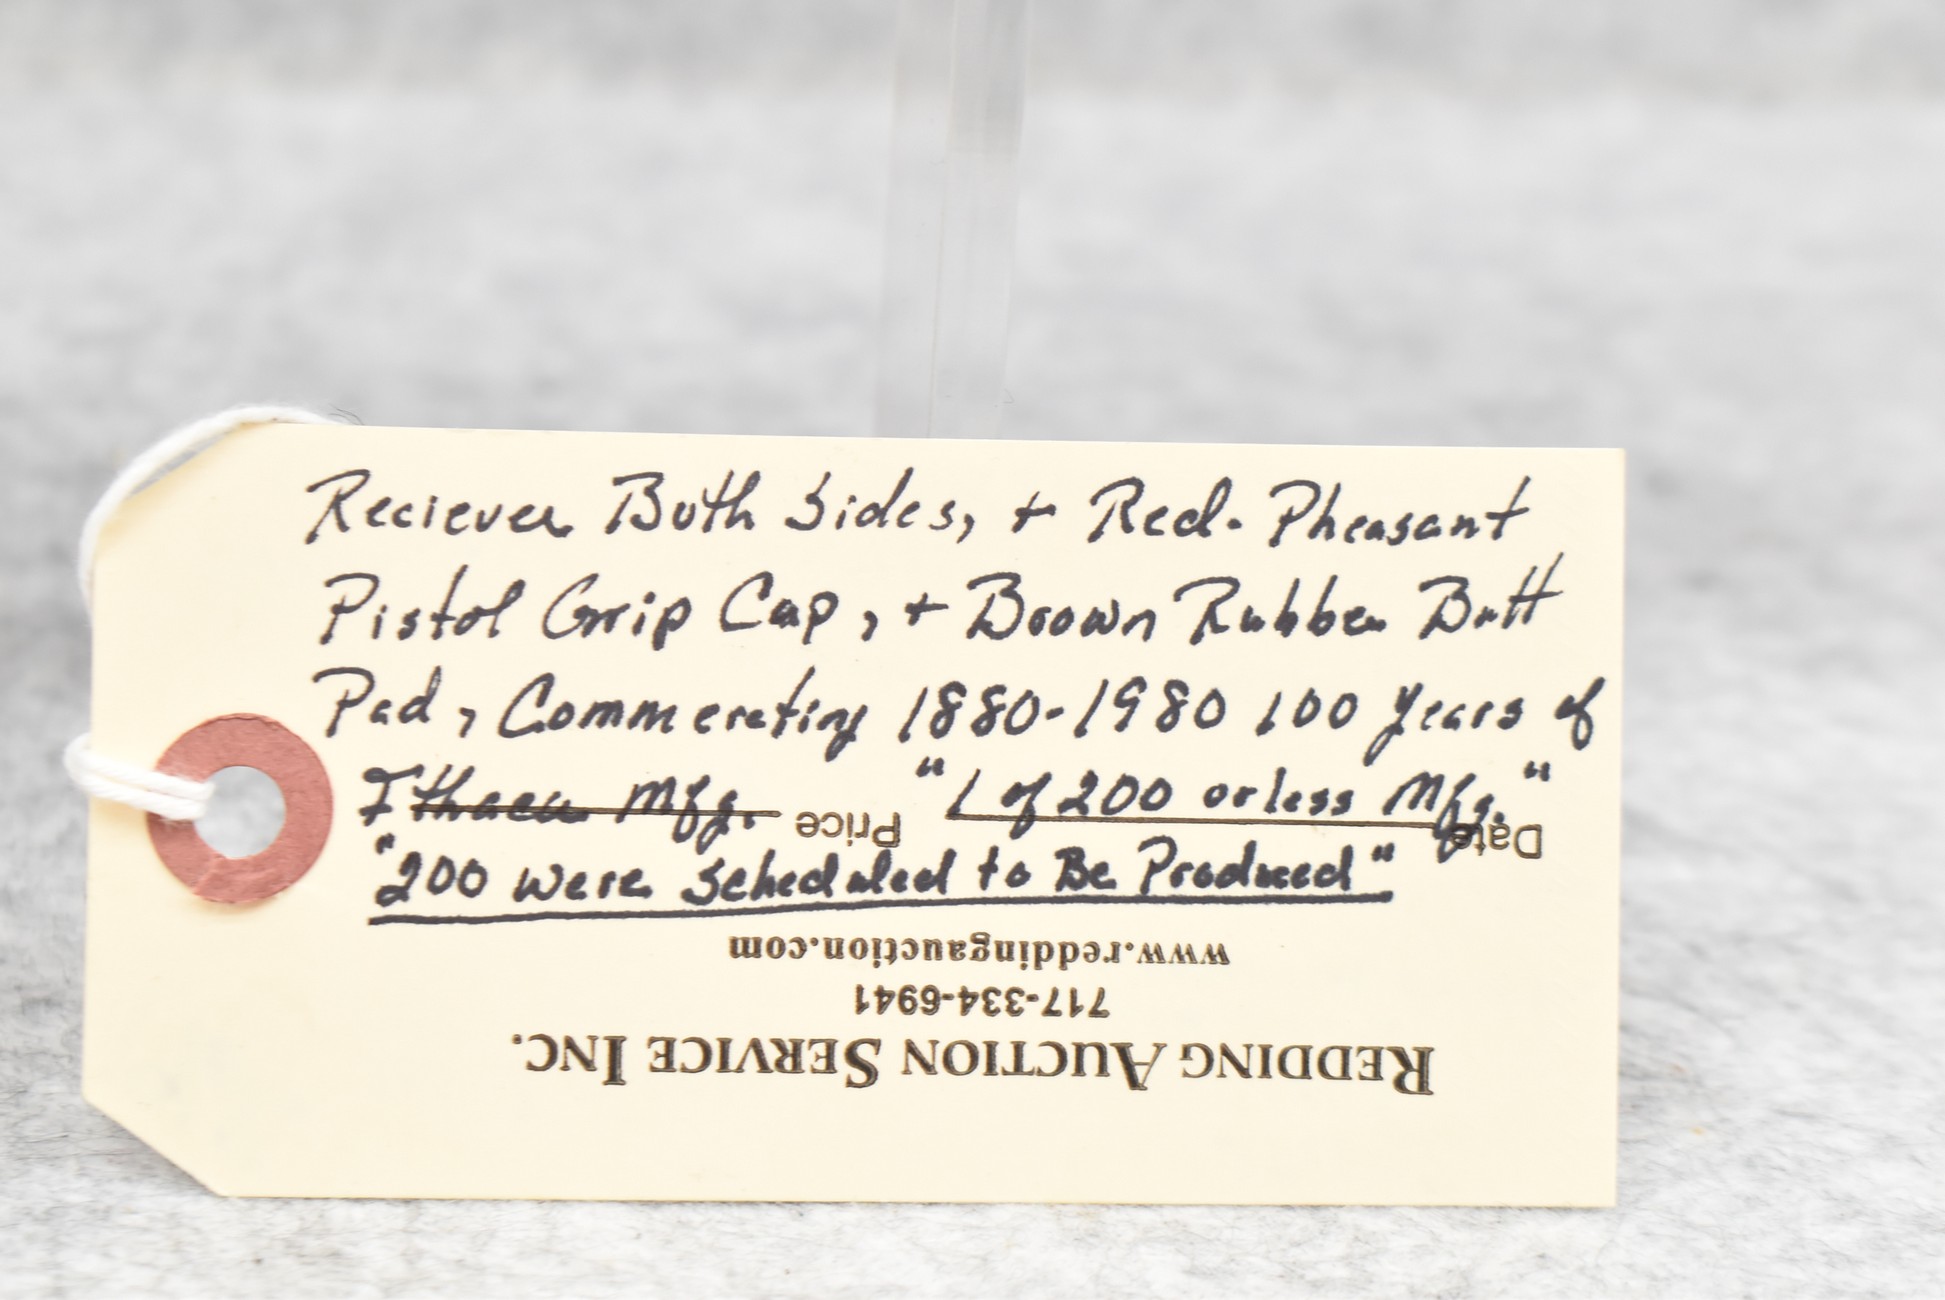 Reciever Both Sides, + Red. Pheasant
Pistol Grip Cap, + Brown Rubber Butt
Pad, Commerating 1880-1980 100 Years of
Ithaca Mfg. "1 of 200 or less Mfg."
Price Date
"200 were Scheduled to Be Produced"
www.reddingauction.com
717-334-6941
REDDING AUCTION SERVICE INC.